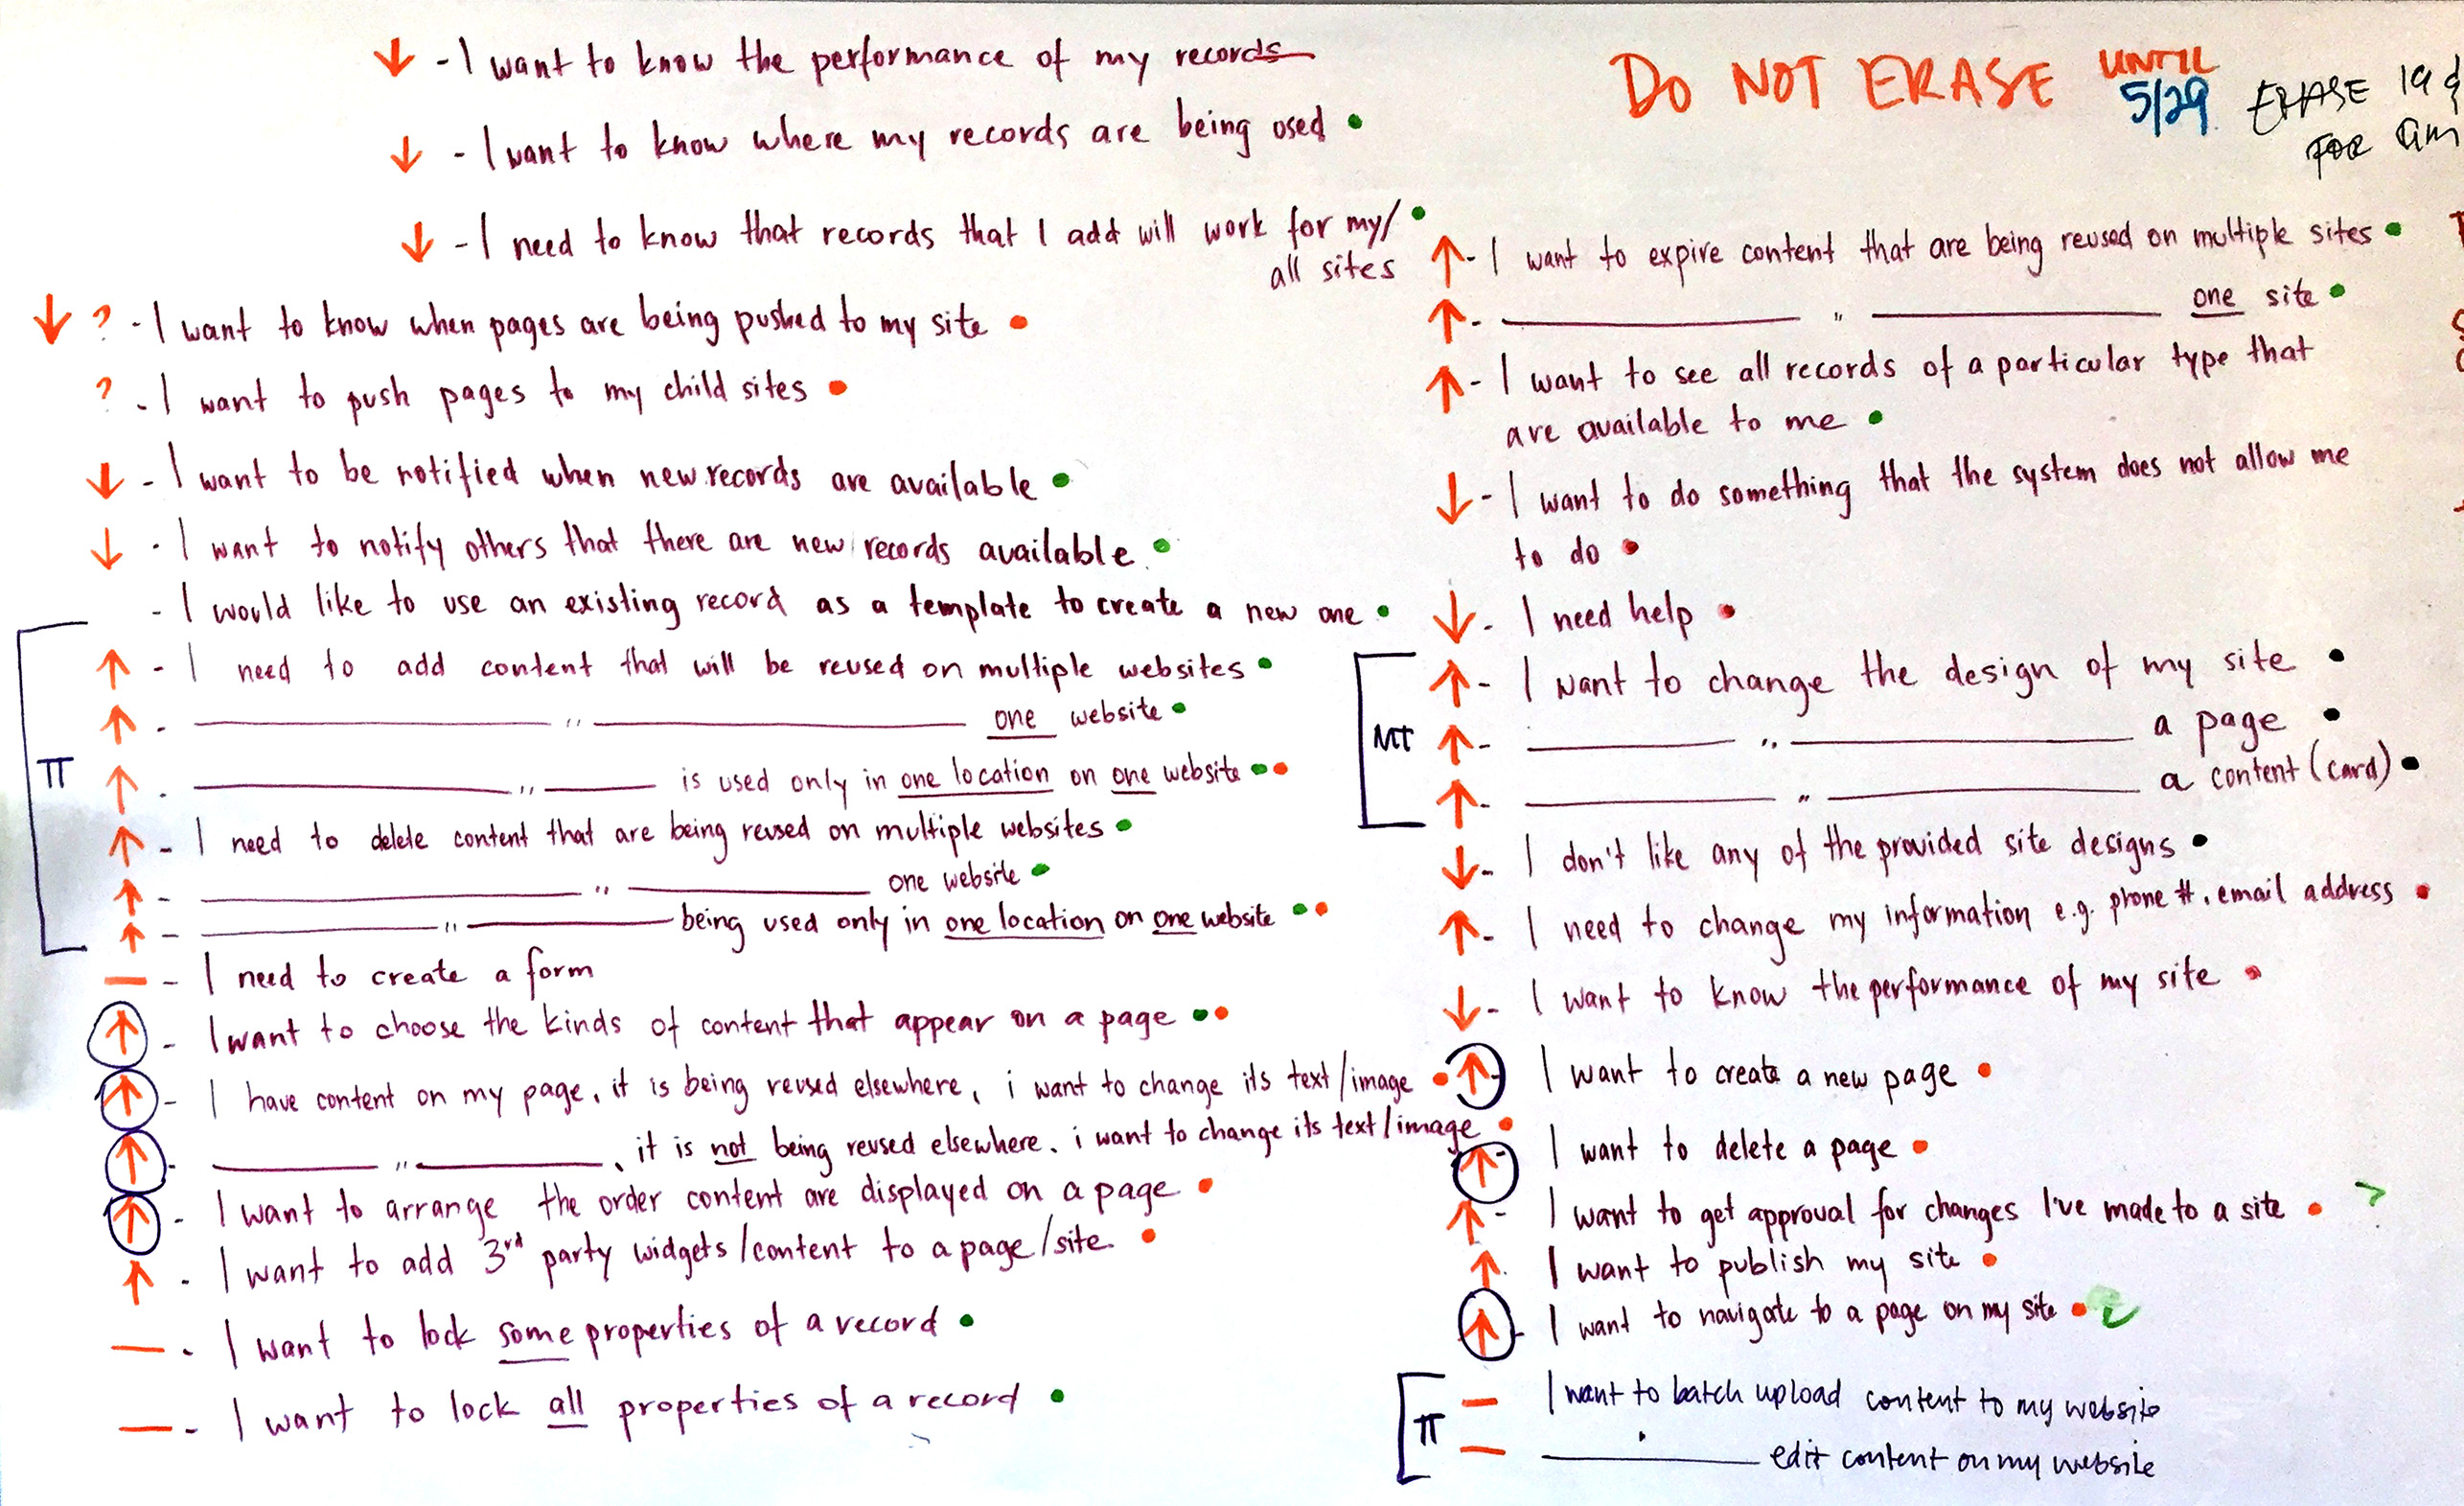 ↓ - I want to know the performance of my records
↓ - I want to know where my records are being used
↓ - I need to know that records that I add will work for my/
all sites
↓ ? - I want to know when pages are being pushed to my site
? - I want to push pages to my child sites
↓ - I want to be notified when new records are available
↓ - I want to notify others that there are new records available
- I would like to use an existing record as a template to create a new one
↑ - I need to add content that will be reused on multiple websites
↑ - ———— " ———— one website
π
↑ - ———— " ———— is used only in one location on one website
↑ - I need to delete content that are being reused on multiple websites
↑ - ———— " ———— one website
↑ - ———— " ———— being used only in one location on one website
— - I need to create a form
↑ - I want to choose the kinds of content that appear on a page
↑ - I have content on my page, it is being reused elsewhere, i want to change its text/image
↑ - ———— " ————, it is not being reused elsewhere. i want to change its text/image
↑ - I want to arrange the order content are displayed on a page
↑ - I want to add 3rd party widgets/content to a page/site
— - I want to lock some properties of a record
— - I want to lock all properties of a record
DO NOT ERASE UNTIL
5/29
ERASE
FOR
↑ - I want to expire content that are being reused on multiple sites
↑ - ———— " ———— one site
↑ - I want to see all records of a particular type that
are available to me
↓ - I want to do something that the system does not allow me
to do
↓ - I need help
↑ - I want to change the design of my site
MT
↑ - ———— " ———— a page
↑ - ———— " ———— a content (card)
↓ - I don't like any of the provided site designs
↑ - I need to change my information e.g. phone #, email address
↓ - I want to know the performance of my site
↑ - I want to create a new page
↑ - I want to delete a page
↑ - I want to get approval for changes I've made to a site
↑ I want to publish my site
↑ - I want to navigate to a page on my site
π
— I want to batch upload content to my website
— ———— edit content on my website